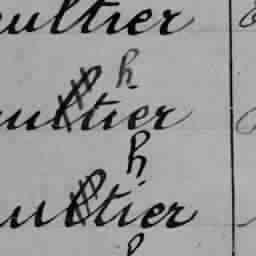 aultier
h
aultier
h
aultier